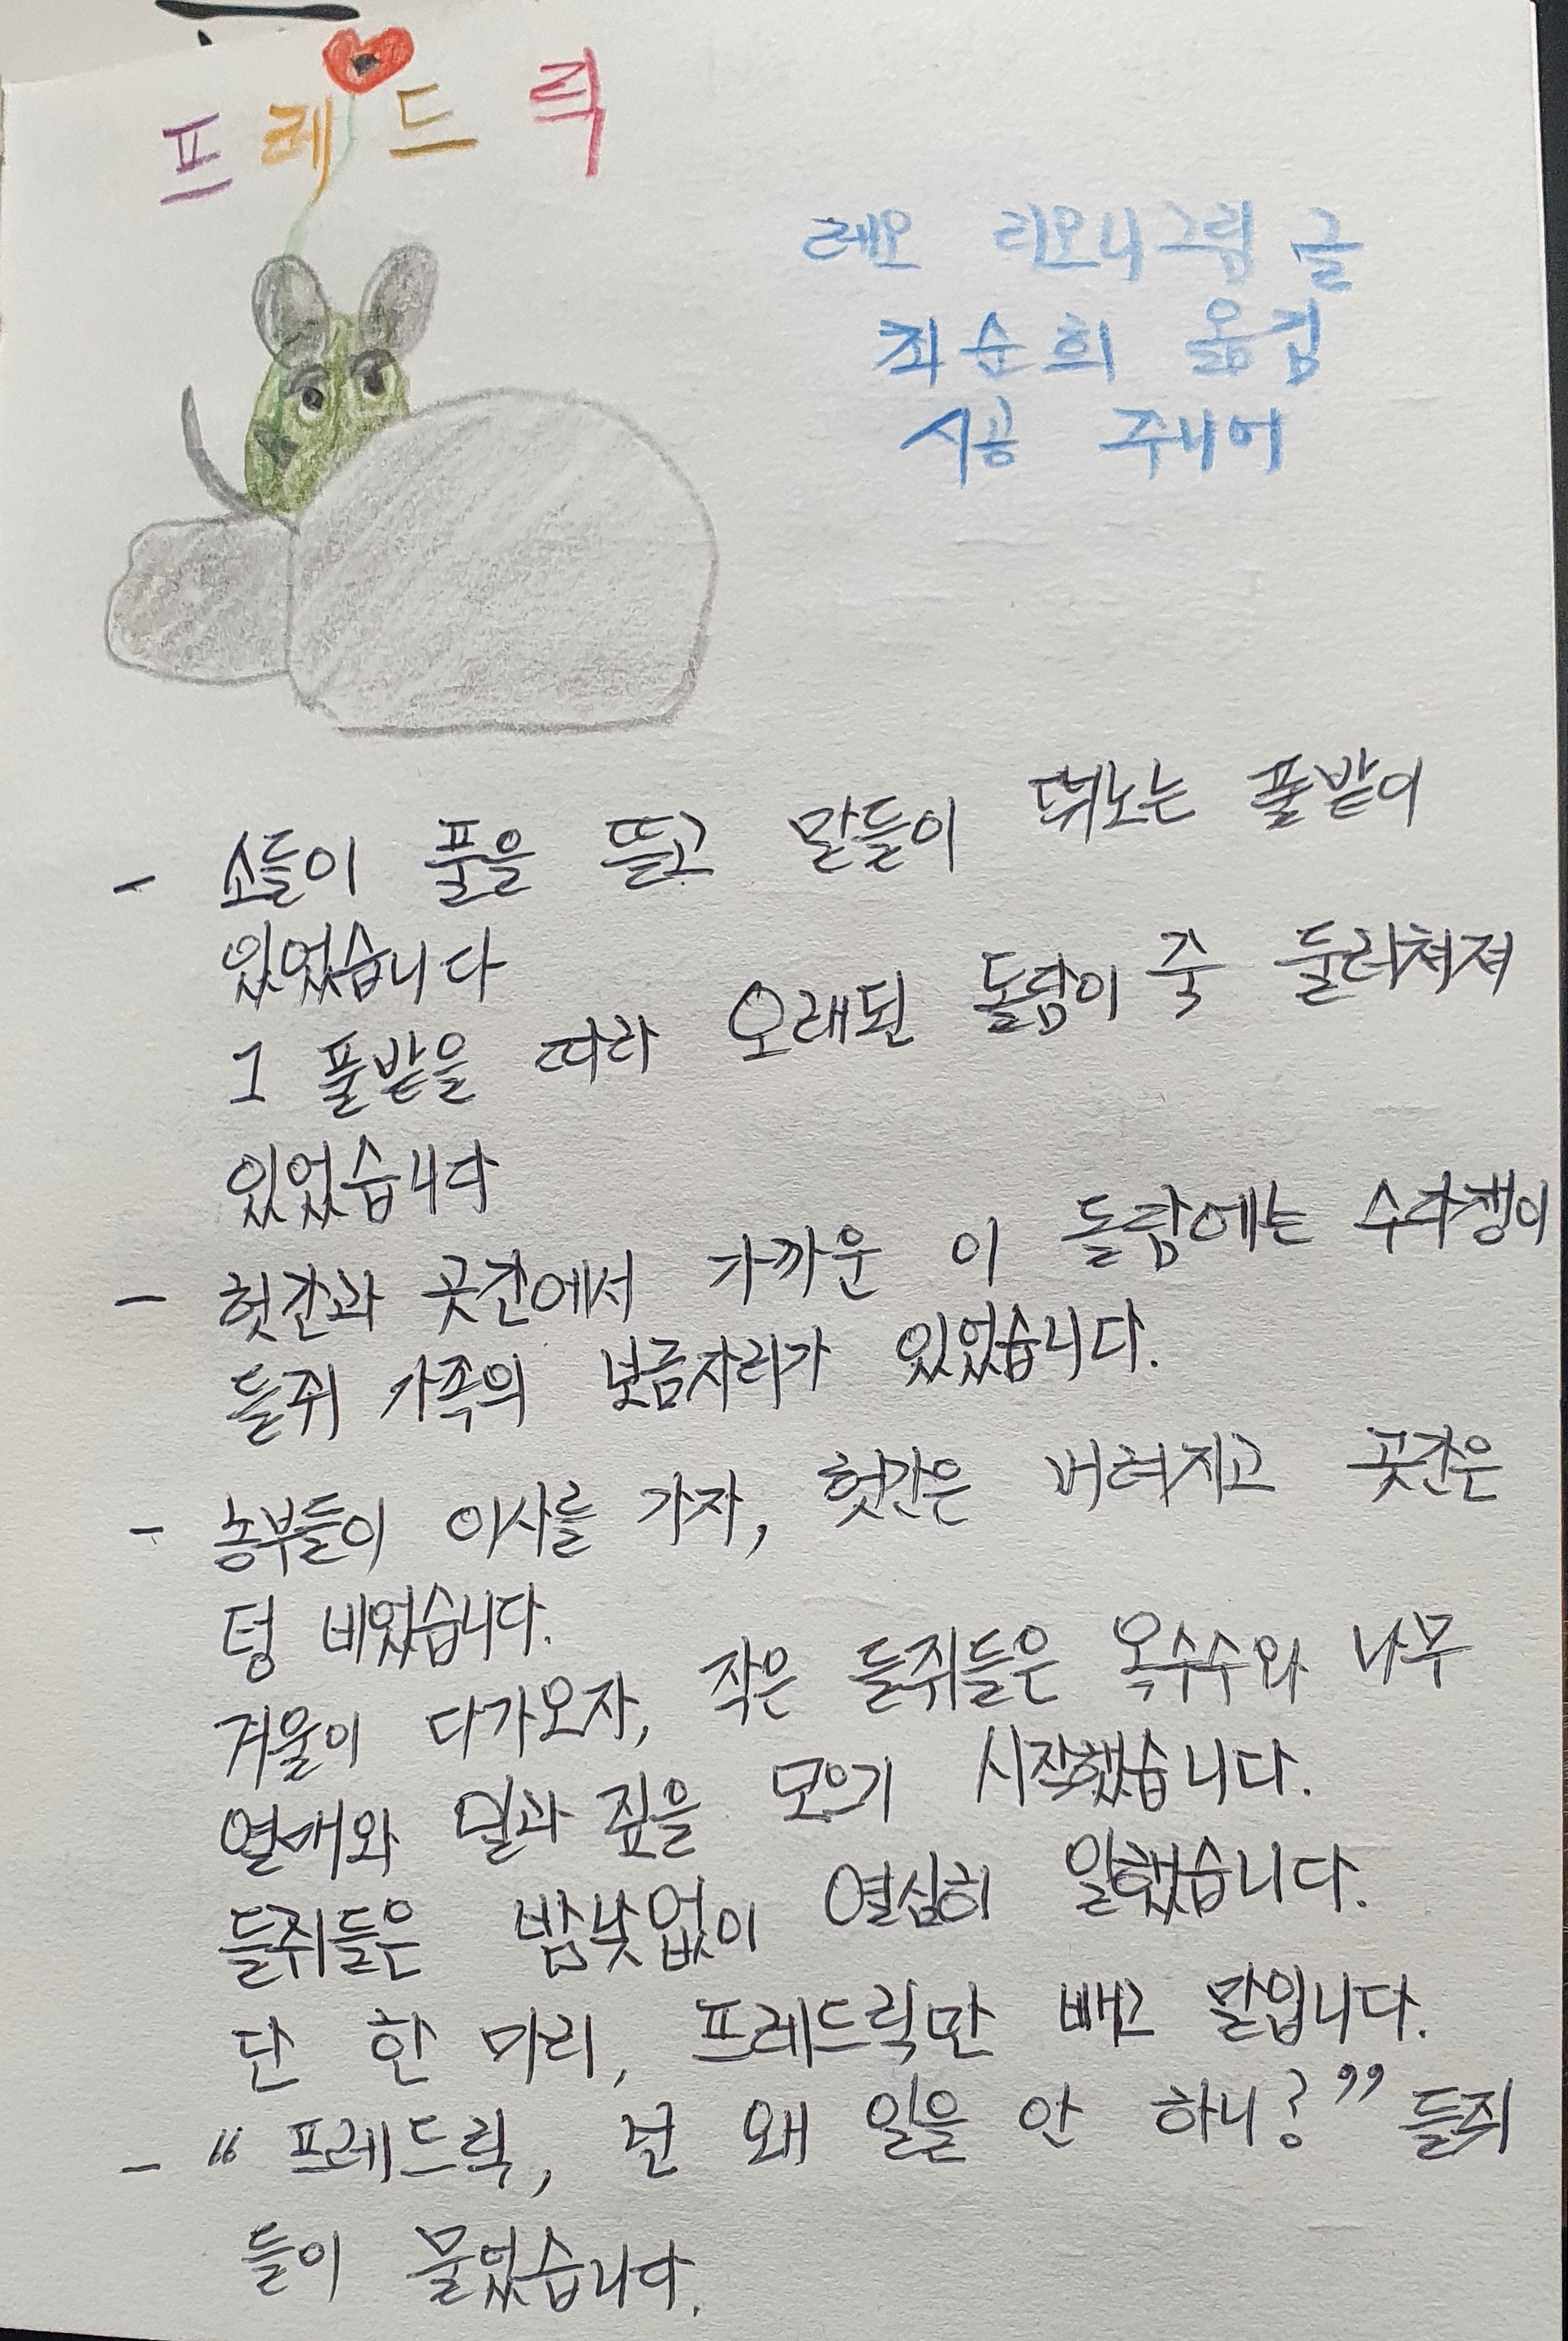 프레드릭
레오 리오니 그림 글
최순희 옮김
시공 주니어
- 소들이 풀을 뜯고 말들이 뛰노는 풀밭이
있었습니다
그 풀밭을 따라 오래된 돌담이 죽 둘러쳐져
있었습니다
- 헛간과 곳간에서 가까운 이 돌담에는 수다쟁이
들쥐 가족의 보금자리가 있었습니다.
- 농부들이 이사를 가자, 헛간은 버려지고 곳간은
텅 비었습니다.
겨울이 다가오자, 작은 들쥐들은 옥수수와 나무
열매와 밀과 짚을 모으기 시작했습니다.
들쥐들은 밤낮없이 열심히 일했습니다.
단 한 마리, 프레드릭만 빼고 말입니다.
- "프레드릭, 넌 왜 일을 안 하니?" 들쥐
들이 물었습니다.